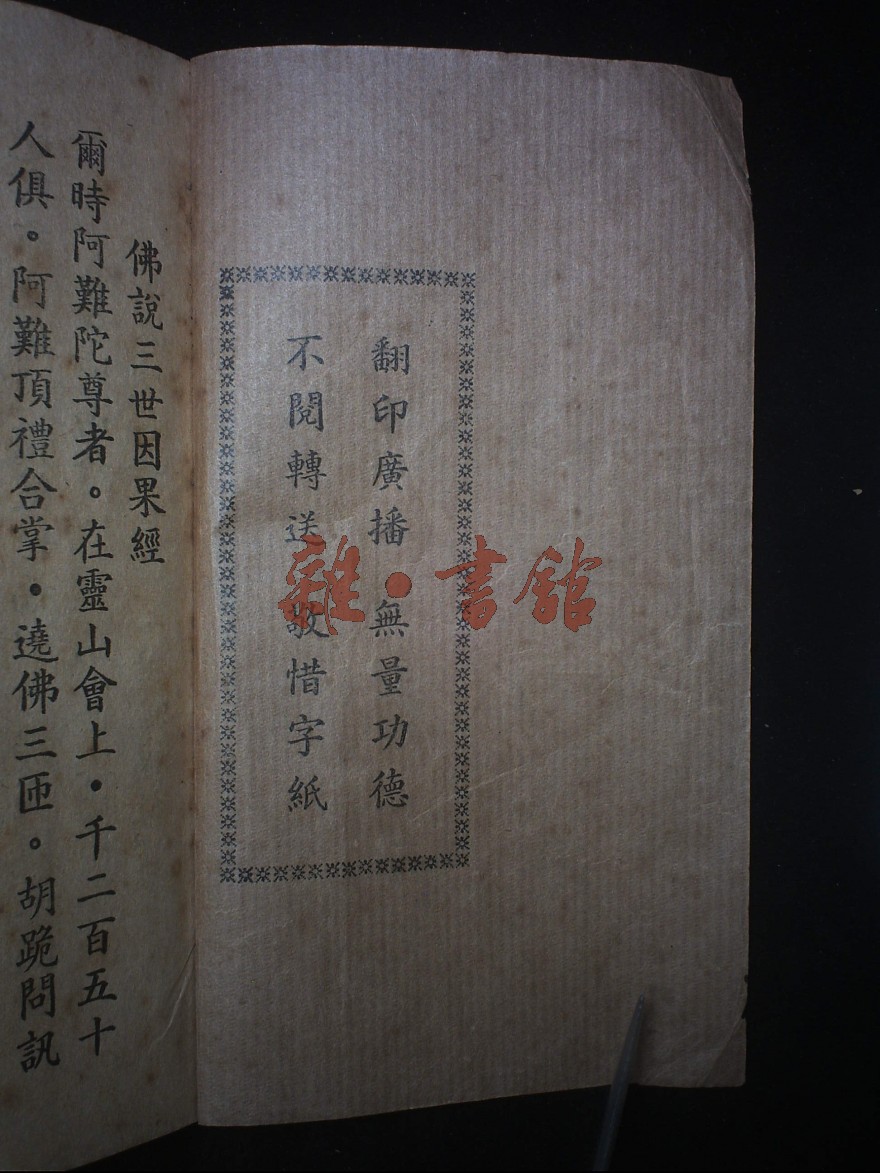 翻印廣播 無量功德
不閱轉送 敬惜字紙
雜·書館
佛說三世因果經
爾時阿難陀尊者。在靈山會上·千二百五十
人俱。阿難頂禮合掌·遶佛三匝。胡跪問訊